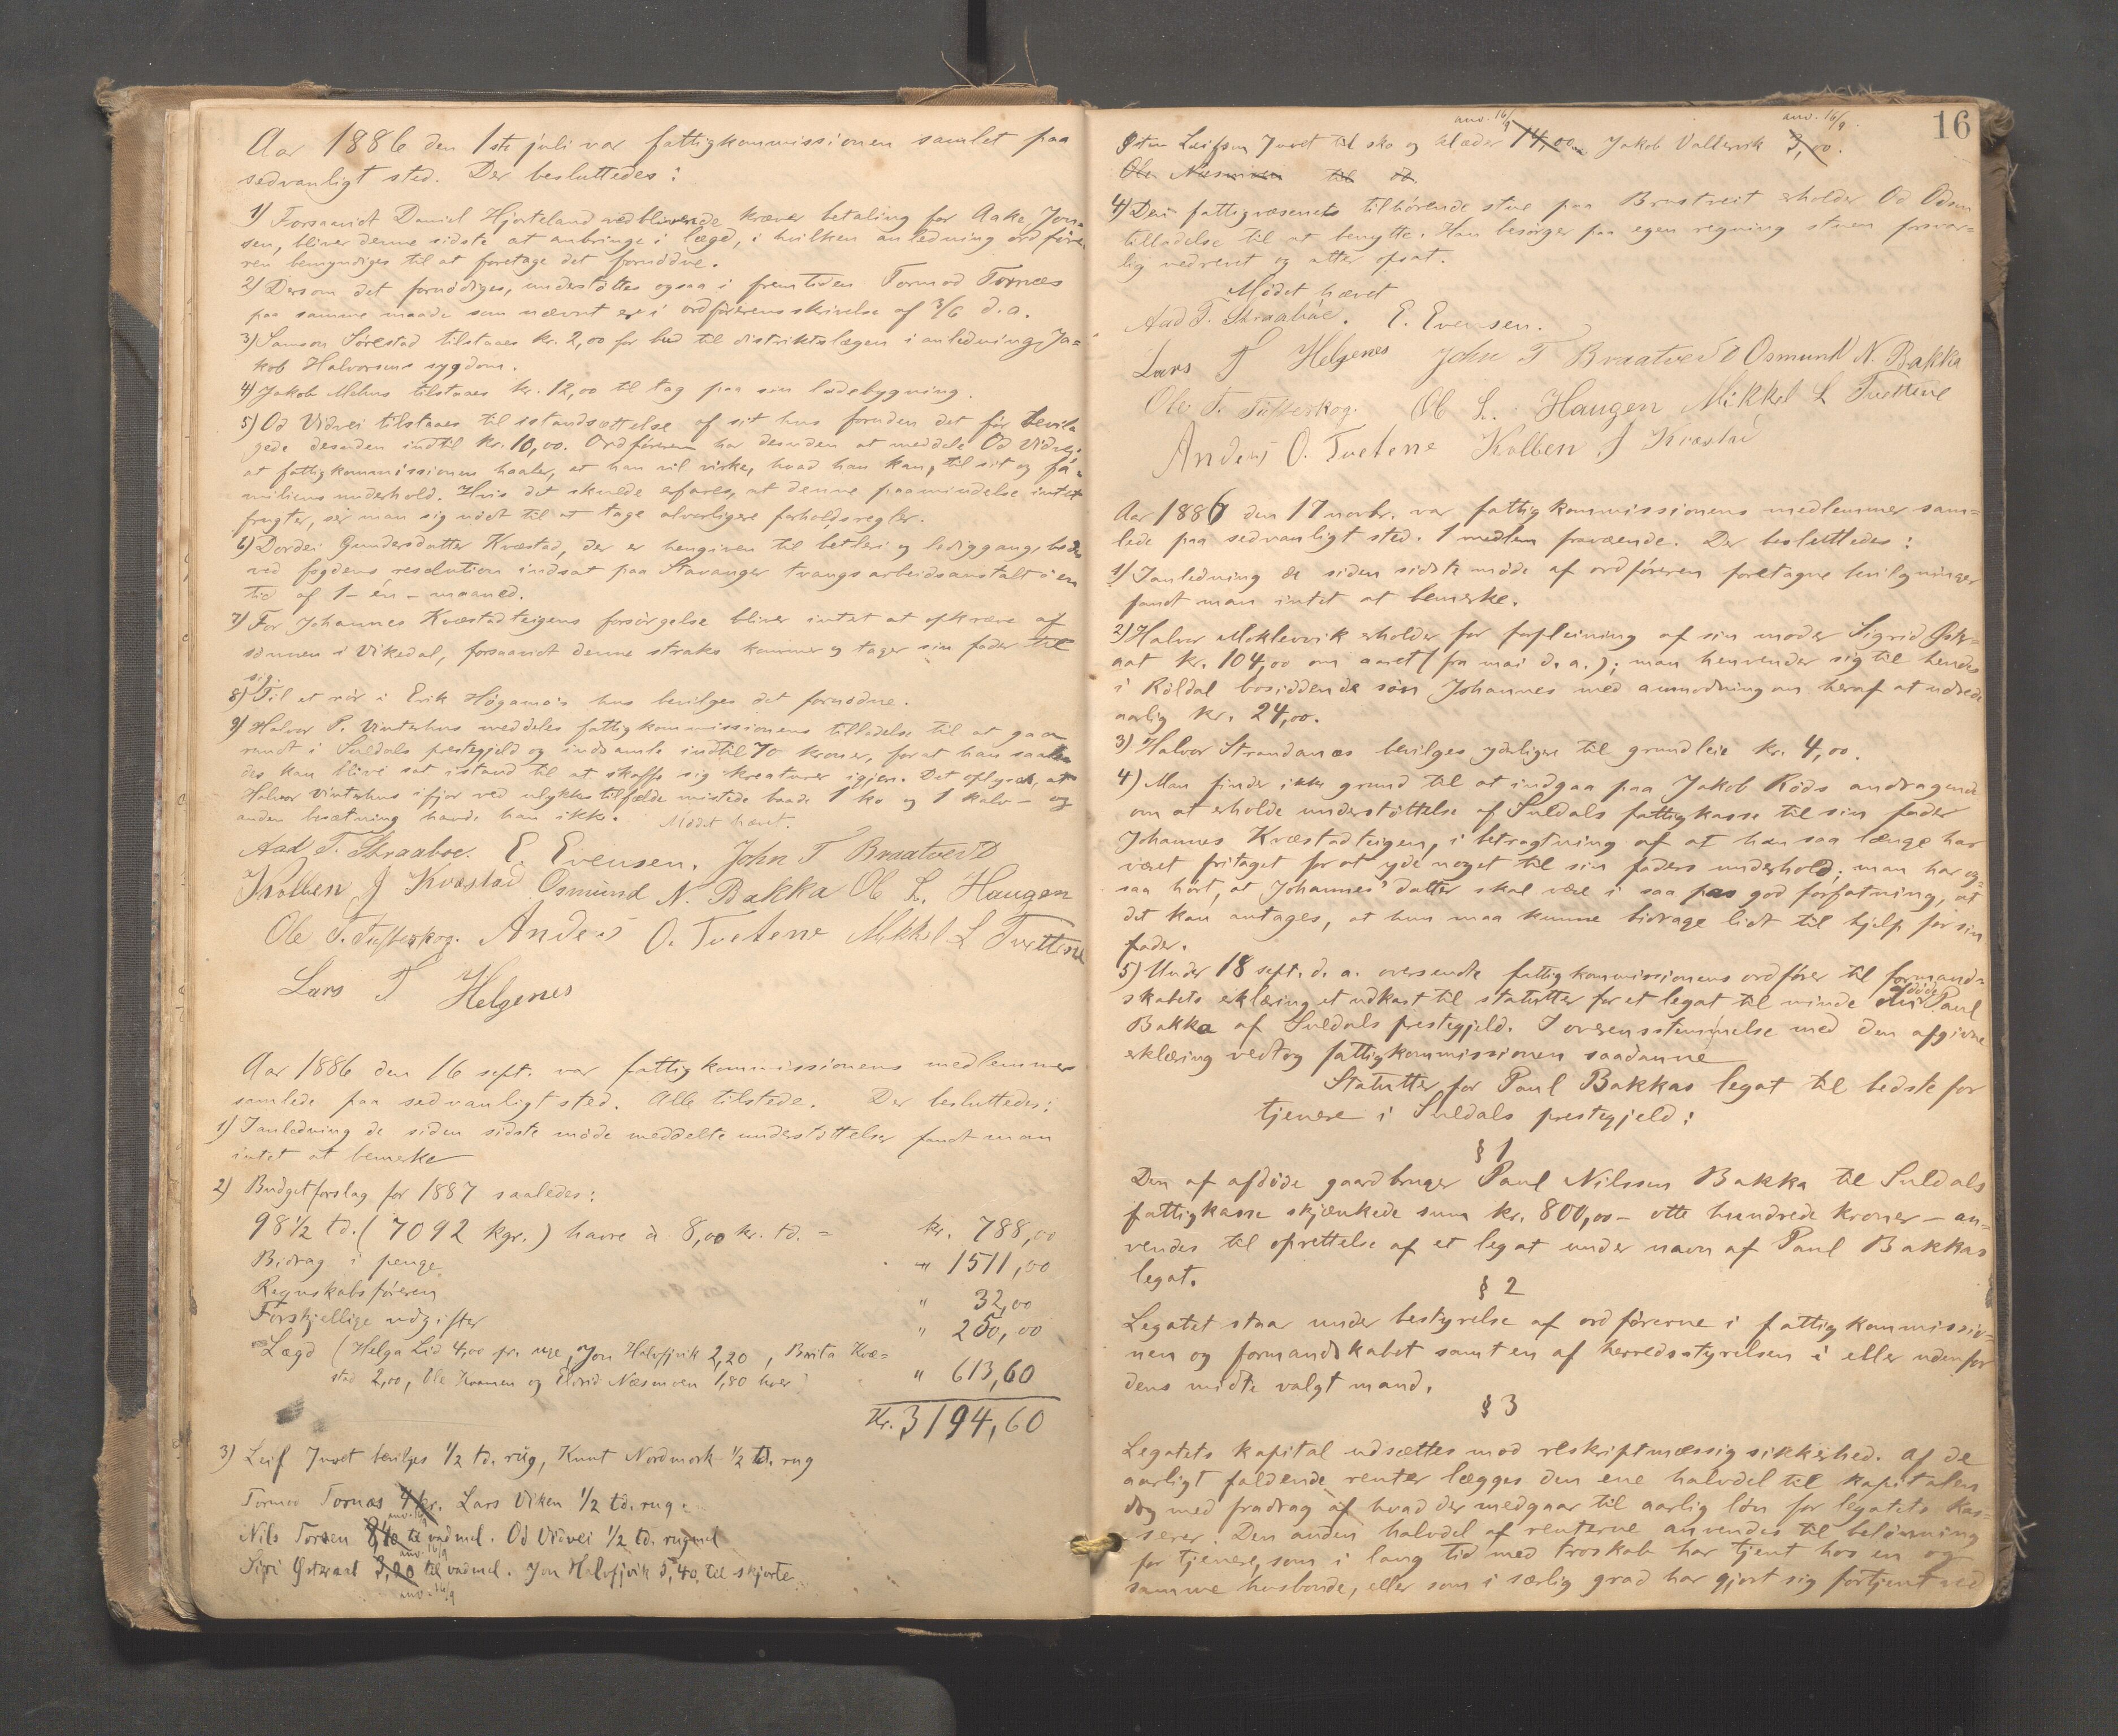 Aar 1886 den 1ste juli var fattigkommissionen samlet paa
sedvanligt sted. Der besluttedes:
1) Forsaavidt Daniel Hjorteland vedblivende kræver betaling for Aake Jon-
sen, bliver denne sidste at anbringe i lægd, i hvilken anledning ordføre-
ren bemyndiges til at foretage det fornødne.
2) Dersom det fornødiges, understøttes ogsaa i fremtiden Tormod Tornæs
paa samme maade som nævnt er i ordførerens skrivelse af 3/6 d.a.
3) Samson Sørestad tilstaaes kr. 2,00 for bud til distriktslægen i anledning Ja-
kob Halvorsens sygdom.
4) Jakob Mehus tilstaaes kr. 12,00 til tag paa sin ladebygning.
5) Od Vidvei tilstaaes til istandsættelse af sit hus foruden det før bevil-
gede desuden indtil kr. 10,00. Ordføreren har desuden at meddele Od Vidvei
at fattigkommissionen haaber, at han vil virke, hvad han kan, til sit og fa-
miliens underhold. Hvis det skulde erfares, at denne paamindelse intet
frugter, ser man sig nødt til at tage alvorligere forholdsregler.
6) Dordei Gundersdatter Kvæstad, der er hengiven til betleri og lediggang, bedes
ved fogdens resolution indsat paa Stavanger tvangsarbeidsanstalt i en
tid af 1 - en - maaned.
7) For Johannes Kvæstadteigens forsørgelse bliver intet at opkræve af
sønnen i Vikedal, forsaavidt denne straks kommer og tager sin fader til
sig.
8) Til et rør i Erik Høgamo's hus bevilges det fornødne.
9) Halvor P. Vinterhus meddeles fattigkommissionens tilladelse til at gaa
rundt i Suldals prestegjeld og indsamle indtil 70 kroner, for at han saale-
des kan blive sat istand til at skaffe sig kreaturer igjen. Det oplyses, at
Halvor Vinterhus ifjor ved ulykkestilfælde mistede baade 1 ko og 1 kalv - og
anden besætning havde han ikke. Mødet hævet.
Aad T. Straabøe. E. Evensen. John T Braatvedt
Kolben J Kvæstad Osmund N. Bakka Ole L. Haugen
Ole T. Tufteskog. Anders O. Tvetene Mikkel L Tvettene
Lars T Helgenes
Aar 1886 den 16 sept. var fattigkommissionens medlemmer
samlede paa sedvanligt sted. Alle tilstede. Der besluttedes:
1) I anledning de siden sidste møde meddelte understøttelser fandt man
intet at bemerke
2) Budgetforslag for 1887 saaledes:
98 1/2 td. (7092 kgr.) havre à 8,00 kr. td. = kr. 788,00
Bidrag i penge " 1511,00
Regnskabsføreren " 32,00
Forskjellige udgifter " 250,00
Lægd (Helga Lid 4,00 pr. uge, Jon Halvfjvik 2,20, Brita Kvæ-
stad 2,00, Ole Kvamen og Eldrid Næsmoen 1,80 hver) " 613,60
Kr. 3194,60
3) Leif Juvet bevilges 1/2 td. rug, Knut Nordmork 1/2 td. rug
Tormod Tornæs 4 kr. Lars Viken 1/2 td. rug.
anv. 16/9
Nils Torsen til vadmel. Od Vidvei 1/2 td. rugmel
anv. 16/9
Siri Østeraat 3,20 til vadmel. Jon Halvfjvik 5,40 til skjorter
anv. 16/9
16
anv. 16/9 anv. 16/9
Leifsen Juvet til sko og klæder 14,00 Jakob Vallervik 3,00.
Ole Næsmoen til od
4) Den fattigvæsenet tilhørende stue paa Bratveit erholder Od Odsen
tilladelse til at benytte. Han besørger paa egen regning stuen forsvar-
lig nedrevet og atter opsat.
Mødet hævet
Aad T. Straabøe. E. Evensen.
Lars T Helgenes John T Braatvedt Osmund N. Bakka
Ole T. Tufteskog. Ole L. Haugen Mikkel L Tvettene
Anders O. Tvetene Kolben J Kvæstad
Aar 1886 den 17 novbr. var fattigkommissionens medlemmer sam-
lede paa sedvanligt sted. 1 medlem fraværende. Der besluttedes:
1) I anledning de siden sidste møde af ordføreren foretagne bevilgninger
fandt man intet at bemerke.
2) Halvor Moklevvik erholder for forpleining af sin moder Sigrid Øster-
aat kr. 104,00 om aaret (fra mai d. a.); man henvender sig til hendes
i Røldal bosiddende søn Johannes med anmodning om heraf at udrede
aarlig kr. 24,00.
3) Halvor Strandanæs bevilges yderligere til grundleie kr. 4,00.
4) Man finder ikke grund til at indgaa paa Jakob Røds andragende
om at erholde understøttelse af Suldals fattigkasse til sin fader
Johannes Kvæstadteigen, i betragtning af at han saa længe har
været fritaget for at yde noget til sin faders underhold; man har og-
saa hørt, at Johannes' datter skal være i saa pas god forfatning, at
det kan antages, at hun maa kunne bidrage lidt til hjelp for sin
fader.
5) Under 18 sept. d. a. oversendte fattigkommissionens ordfører til formand-
skabets erklæring et udkast til statutter for et legat til minde om afdøde Paul
Bakka af Suldals prestegjeld. I overensstemmelse med den afgivne
erklæring vedtog fattigkommissionen saadanne
Statutter for Paul Bakkas legat til bedste for
tjenere i Suldals prestegjeld:
§ 1
Den af afdøde gaardbruger Paul Nilssen Bakka til Suldals
fattigkasse skjænkede sum kr. 800,00 - otte hundrede kroner - an-
vendes til oprettelse af et legat under navn af Paul Bakkas
legat.
§ 2
Legatet staar under bestyrelse af ordførerne i fattigkommissio-
nen og formandskabet samt en af herredsstyrelsen i eller udenfor
dens midte valgt mand.
§ 3
Legatets kapital udsættes mod reskriptmæssig sikkerhed. Af de
aarligt faldende renter lægges den ene halvdel til kapitalen
dog med fradrag af hvad der medgaar til aarlig løn for legatets kas-
serer. Den anden halvdel af renterne anvendes til belønning
for tjenere, som i lang tid med troskab har tjent hos en og
samme husbonde, eller som i særlig grad har gjort sig fortjent ved